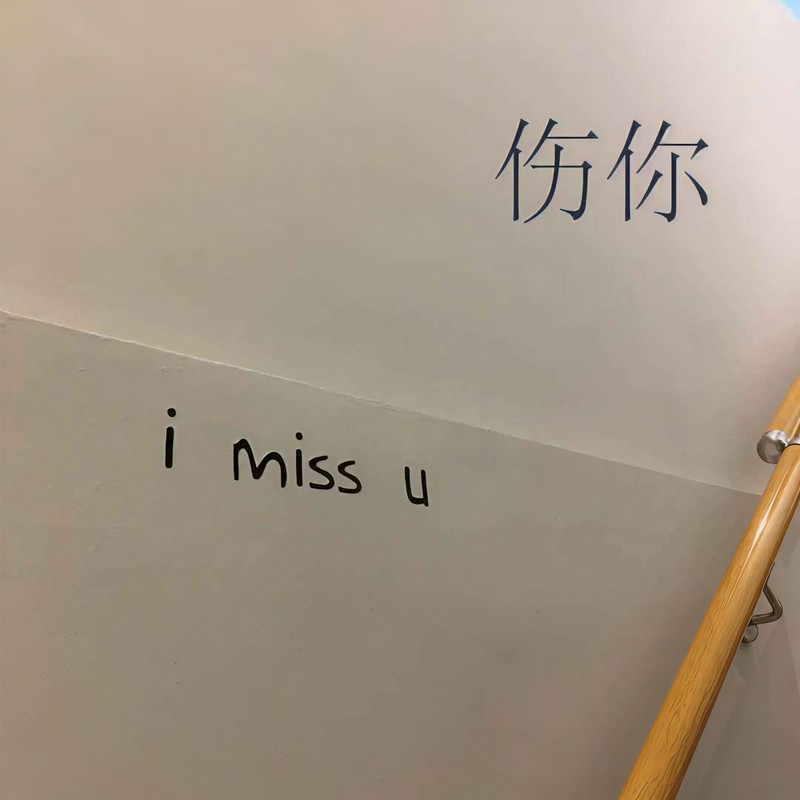 伤你
i miss u